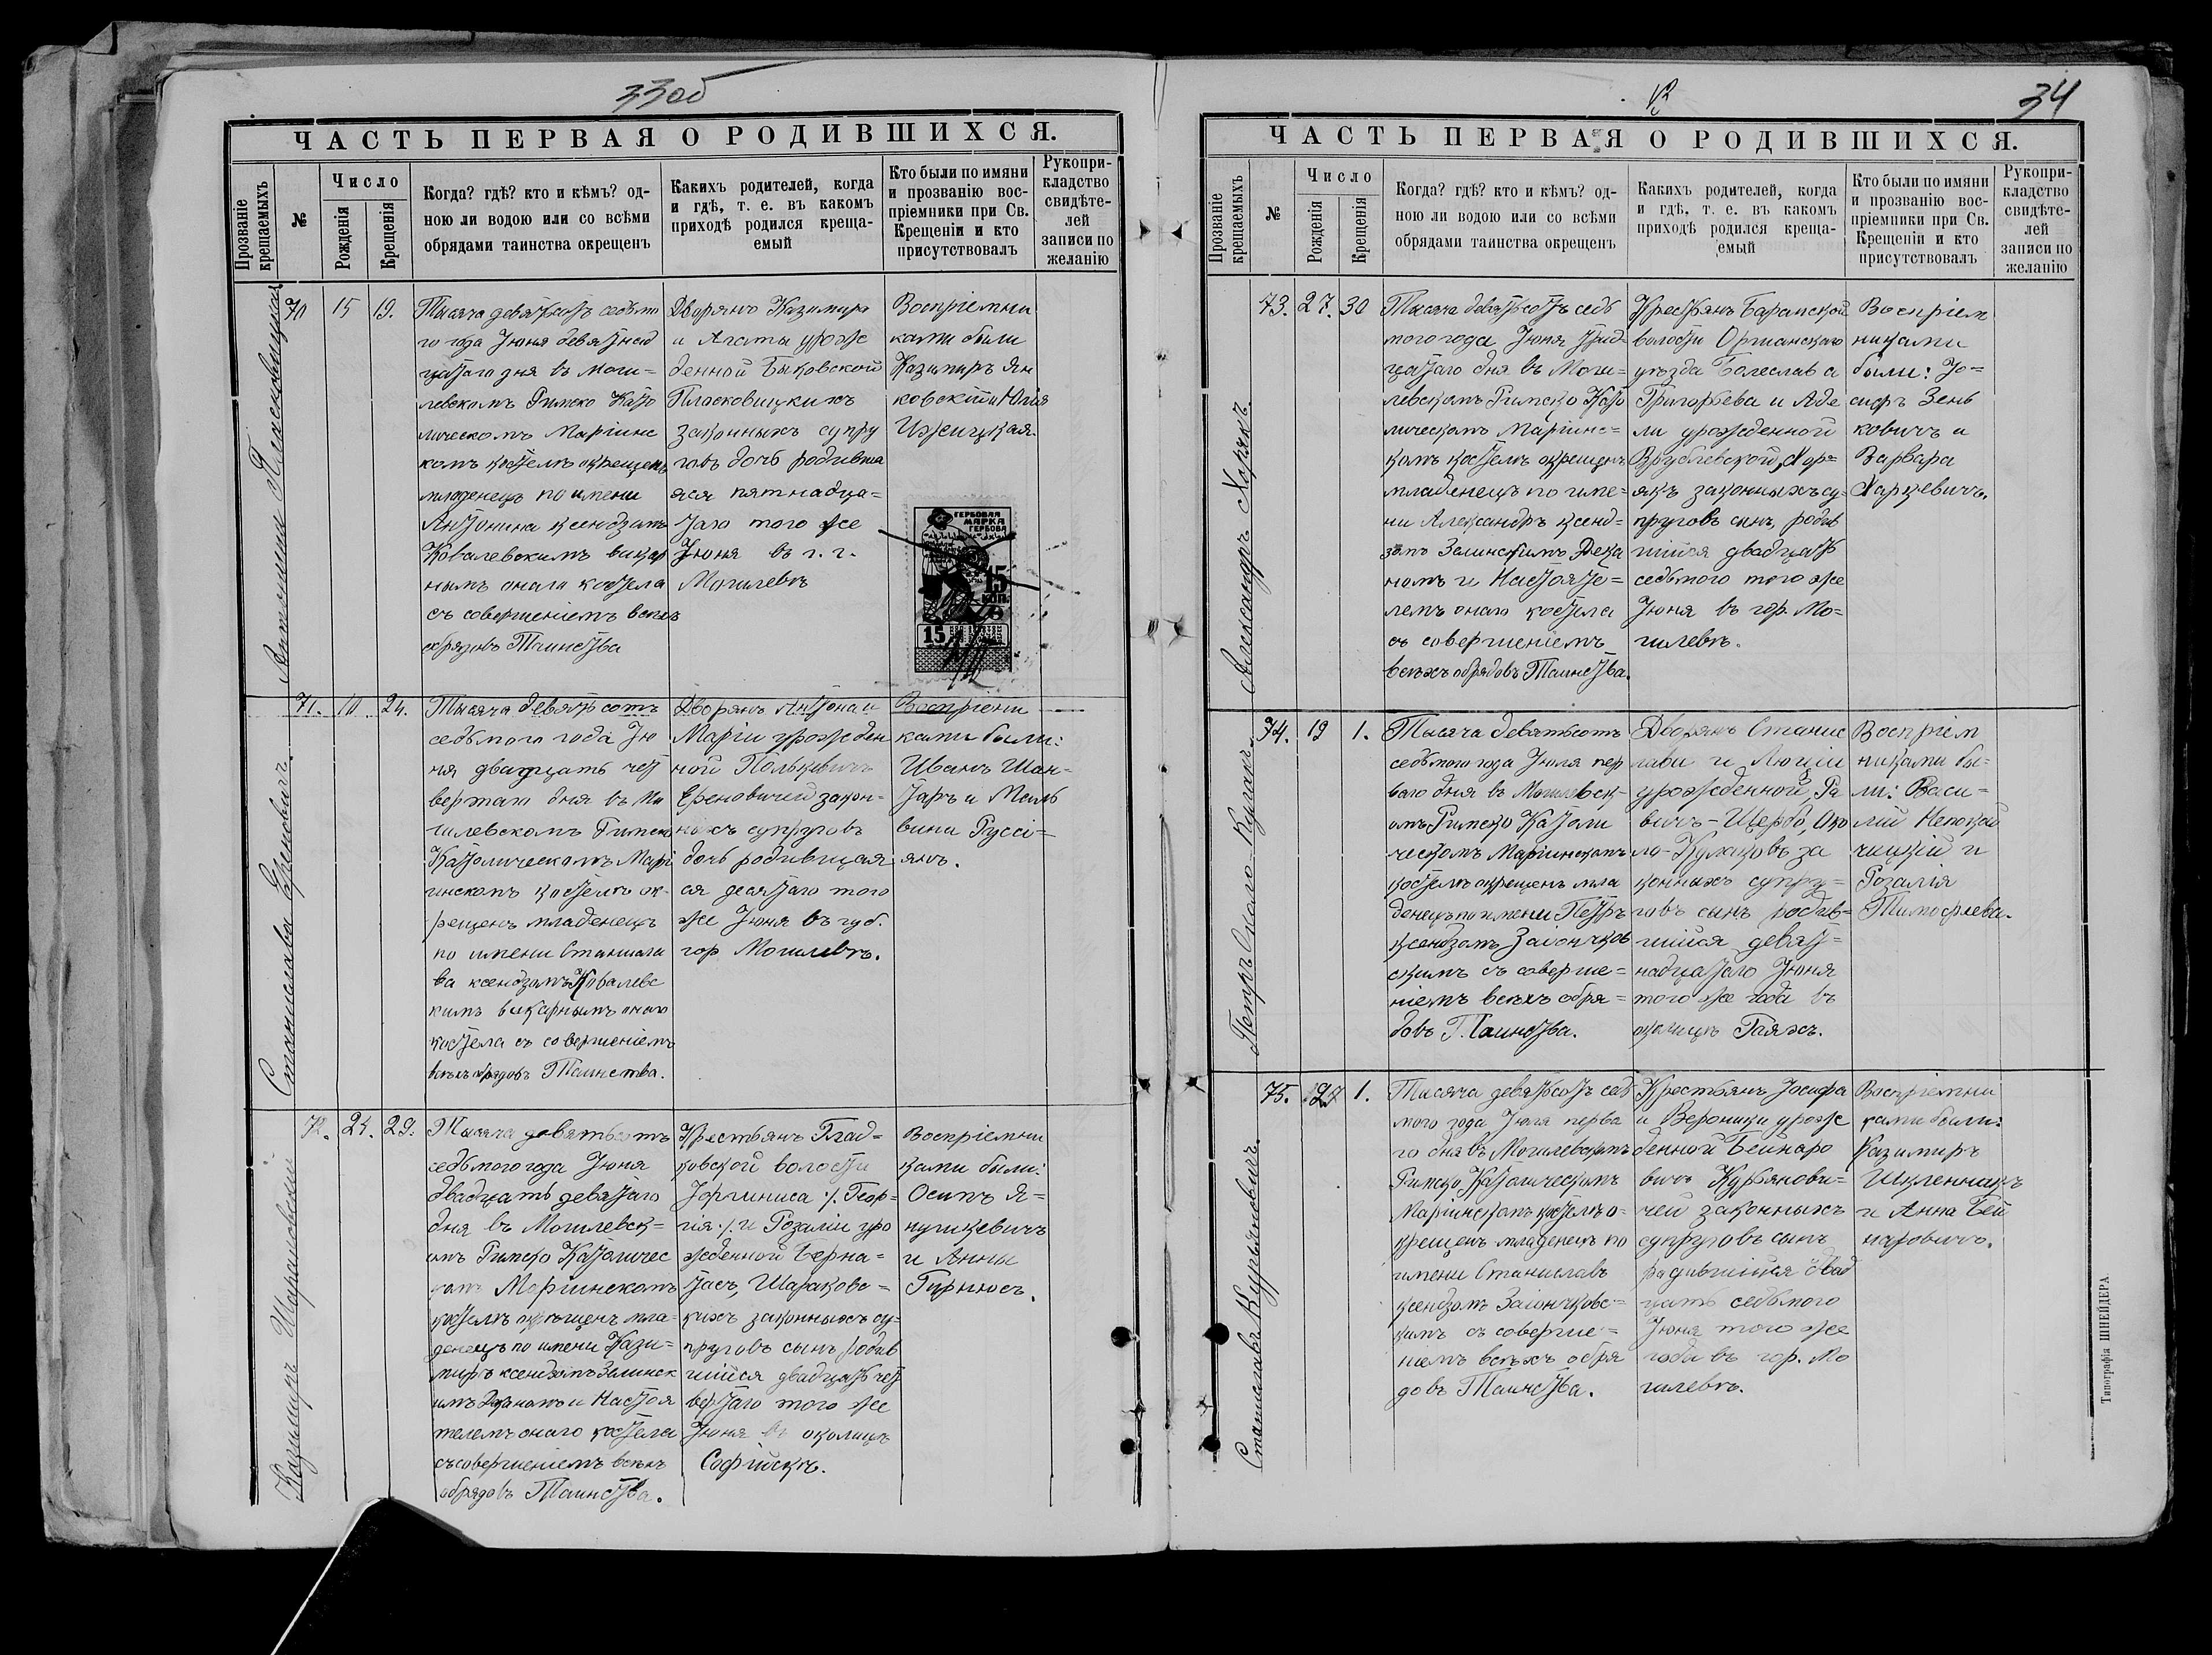 33об
ЧАСТЬ ПЕРВАЯ О РОДИВШИХСЯ.
Прозваніе крещаемыхъ
№
Число
Рожденія
Крещенія
Когда? гдѣ? кто и кѣмъ? од-
ною ли водою или со всѣми
обрядами таинства окрещенъ
Какихъ родителей, когда
и гдѣ, т. е. въ какомъ
приходѣ родился креща-
емый
Кто были по имяни
и прозванію вос-
пріемники при Св.
Крещеніи и кто
присутствовалъ
Рукопри-
кладство
свидѣте-
лей
записи по
желанію
Антонина Пласковицкая
70
15
19.
Тысяча девятьсотъ седьмо
го года Іюня девятнад
цатаго дня въ Моги-
левскомъ Римско Като
лическомъ Маріинс
комъ костелѣ окрещенъ
младенецъ по имени
Антонина ксендзомъ
Ковалевскимъ викар
нымъ онаго костела
съ совершеніемъ всѣхъ
обрядовъ Таинства
Дворянъ Казимира
и Агаты урож
денной Быковской
Пласковицкихъ
законныхъ супру
говъ дочь родивша
яся пятнадца-
таго того же
Іюня въ г. г.
Могилевѣ
Воспріемни
ками были
Казимиръ Ян
ковскій и Юлія
Ижицкая.
ГЕРБОВАЯ
МАРКА
ГЕРБОВА
15
КОП.
15
Станислава Ереновичъ.
71.
10
24.
Тысяча девятьсотъ
седьмого года Ію
ня двадцать чет
вертаго дня въ Мо
гилевскомъ Римско
Католическомъ Марі
инскомъ костелѣ ок-
рещенъ младенецъ
по имени Станисла
ва ксендзомъ Ковалевс
кимъ викарнымъ онаго
костела съ совершеніемъ
всѣхъ обрядовъ Таинства.
Дворянъ Антона и
Маріи урожден
ной Полькевичъ
Ереновичей закон-
ныхъ супруговъ
дочь родившая
ся десятаго того
же Іюня въ губ.
гор Могилевѣ.
Воспріемни
ками были:
Иванъ Шан-
таръ и Маль
вина Руссі-
янъ.
Казимиръ Шараковскій
72.
24.
29.
Тысяча девятьсотъ
седьмого года Іюня
двадцать девятаго
дня въ Могилевск-
омъ Римско Католичес
комъ Маріинскомъ
костелѣ окрещенъ мла-
денецъ по имени Кази-
миръ ксендзомъ Зелинск
имъ Деканомъ и Настоя
телемъ онаго костела
съ совершеніемъ всѣхъ
обрядовъ Таинства.
Крестьянъ Глад-
ковской волости
Юргиниса /. Геор-
гія ./. и Розаліи уро
жденной Берна-
тасъ, Шараковс-
кихъ законныхъ су-
пруговъ сынъ, родив
шійся двадцать чет
вертаго того же
Іюня въ околицѣ
Софійскѣ.
Воспріемни
ками были:
Осипъ Я-
нушкевичъ
и Анны
Гирнюсъ.
34
ЧАСТЬ ПЕРВАЯ О РОДИВШИХСЯ.
Прозваніе крещаемыхъ
№
Число
Рожденія
Крещенія
Когда? гдѣ? кто и кѣмъ? од-
ною ли водою или со всѣми
обрядами таинства окрещенъ
Какихъ родителей, когда
и гдѣ, т. е. въ какомъ
приходѣ родился креща-
емый
Кто были по имяни
и прозванію вос-
пріемники при Св.
Крещеніи и кто
присутствовалъ
Рукопри-
кладство
свидѣте-
лей
записи по
желанію
Александръ Хорякъ.
73.
27.
30
Тысяча девятьсотъ седь
мого года Іюня трид-
цатаго дня въ Моги-
левскомъ Римско Като
лическомъ Маріинс-
комъ костелѣ окрещенъ
младенецъ по име-
ни Александръ ксенд-
зомъ Зелинскимъ Дека
номъ и Настояте-
лемъ онаго костела
съ совершеніемъ
всѣхъ обрядовъ Таинства.
Крестьянъ Баранской
волости Оршанскаго
уѣзда Болеслава
Григорьева и Аде
ли урожденной
Врублевской, Хор-
якъ законныхъ су-
пруговъ сынъ, родив
шійся двадцать
седьмого того же
Іюня въ гор. Мо-
гилевѣ.
Воспріем
никами
были: Іо-
сифъ Зень
ковичъ и
Варвара
Харкевичъ.
Петръ Около-Кулакъ.
74.
19
1.
Тысяча девятьсотъ
седьмого года Іюля пер
ваго дня въ Могилевск-
омъ Римско Католи
ческомъ Маріинскомъ
костелѣ окрещенъ мла
денецъ по имени Петръ
ксендзомъ Заіончков
скимъ съ соверше-
ніемъ всѣхъ обря-
довъ Таинства.
Дворянъ Станис
лава и Люціи
урожденной Ра
вичъ-Щерба, Око
ло-Кулаковъ за
конныхъ супру-
говъ сынъ родив-
шійся девят-
надцатаго Іюня
того же года въ
околицѣ Гаяхъ.
Воспріем
никами бы-
ли: Васи-
лій
чицкій и
Розалія
Тимофеева.
Станиславъ Курьяновичъ.
75.
27
1.
Тысяча девятьсотъ седь
мого года Іюля перва
го дня въ Могилевскомъ
Римско Католическомъ
Маріинскомъ костелѣ о-
крещенъ младенецъ по
имени Станиславъ
ксендзомъ Заіончковс-
кимъ съ соверше-
ніемъ всѣхъ обря
довъ Таинства.
Крестьянъ Іосифа
и Вероники урож
денной Бейнаро
вичъ Курьянови-
чей законныхъ
супруговъ сынъ
родившійся двад
цать седьмого
Іюня того же
года въ гор. Мо
гилевѣ.
Воспріемни
ками были:
Казимиръ
Шкленникъ
и Анна Бей
наровичъ.
Типографія ШНЕЙДЕРА